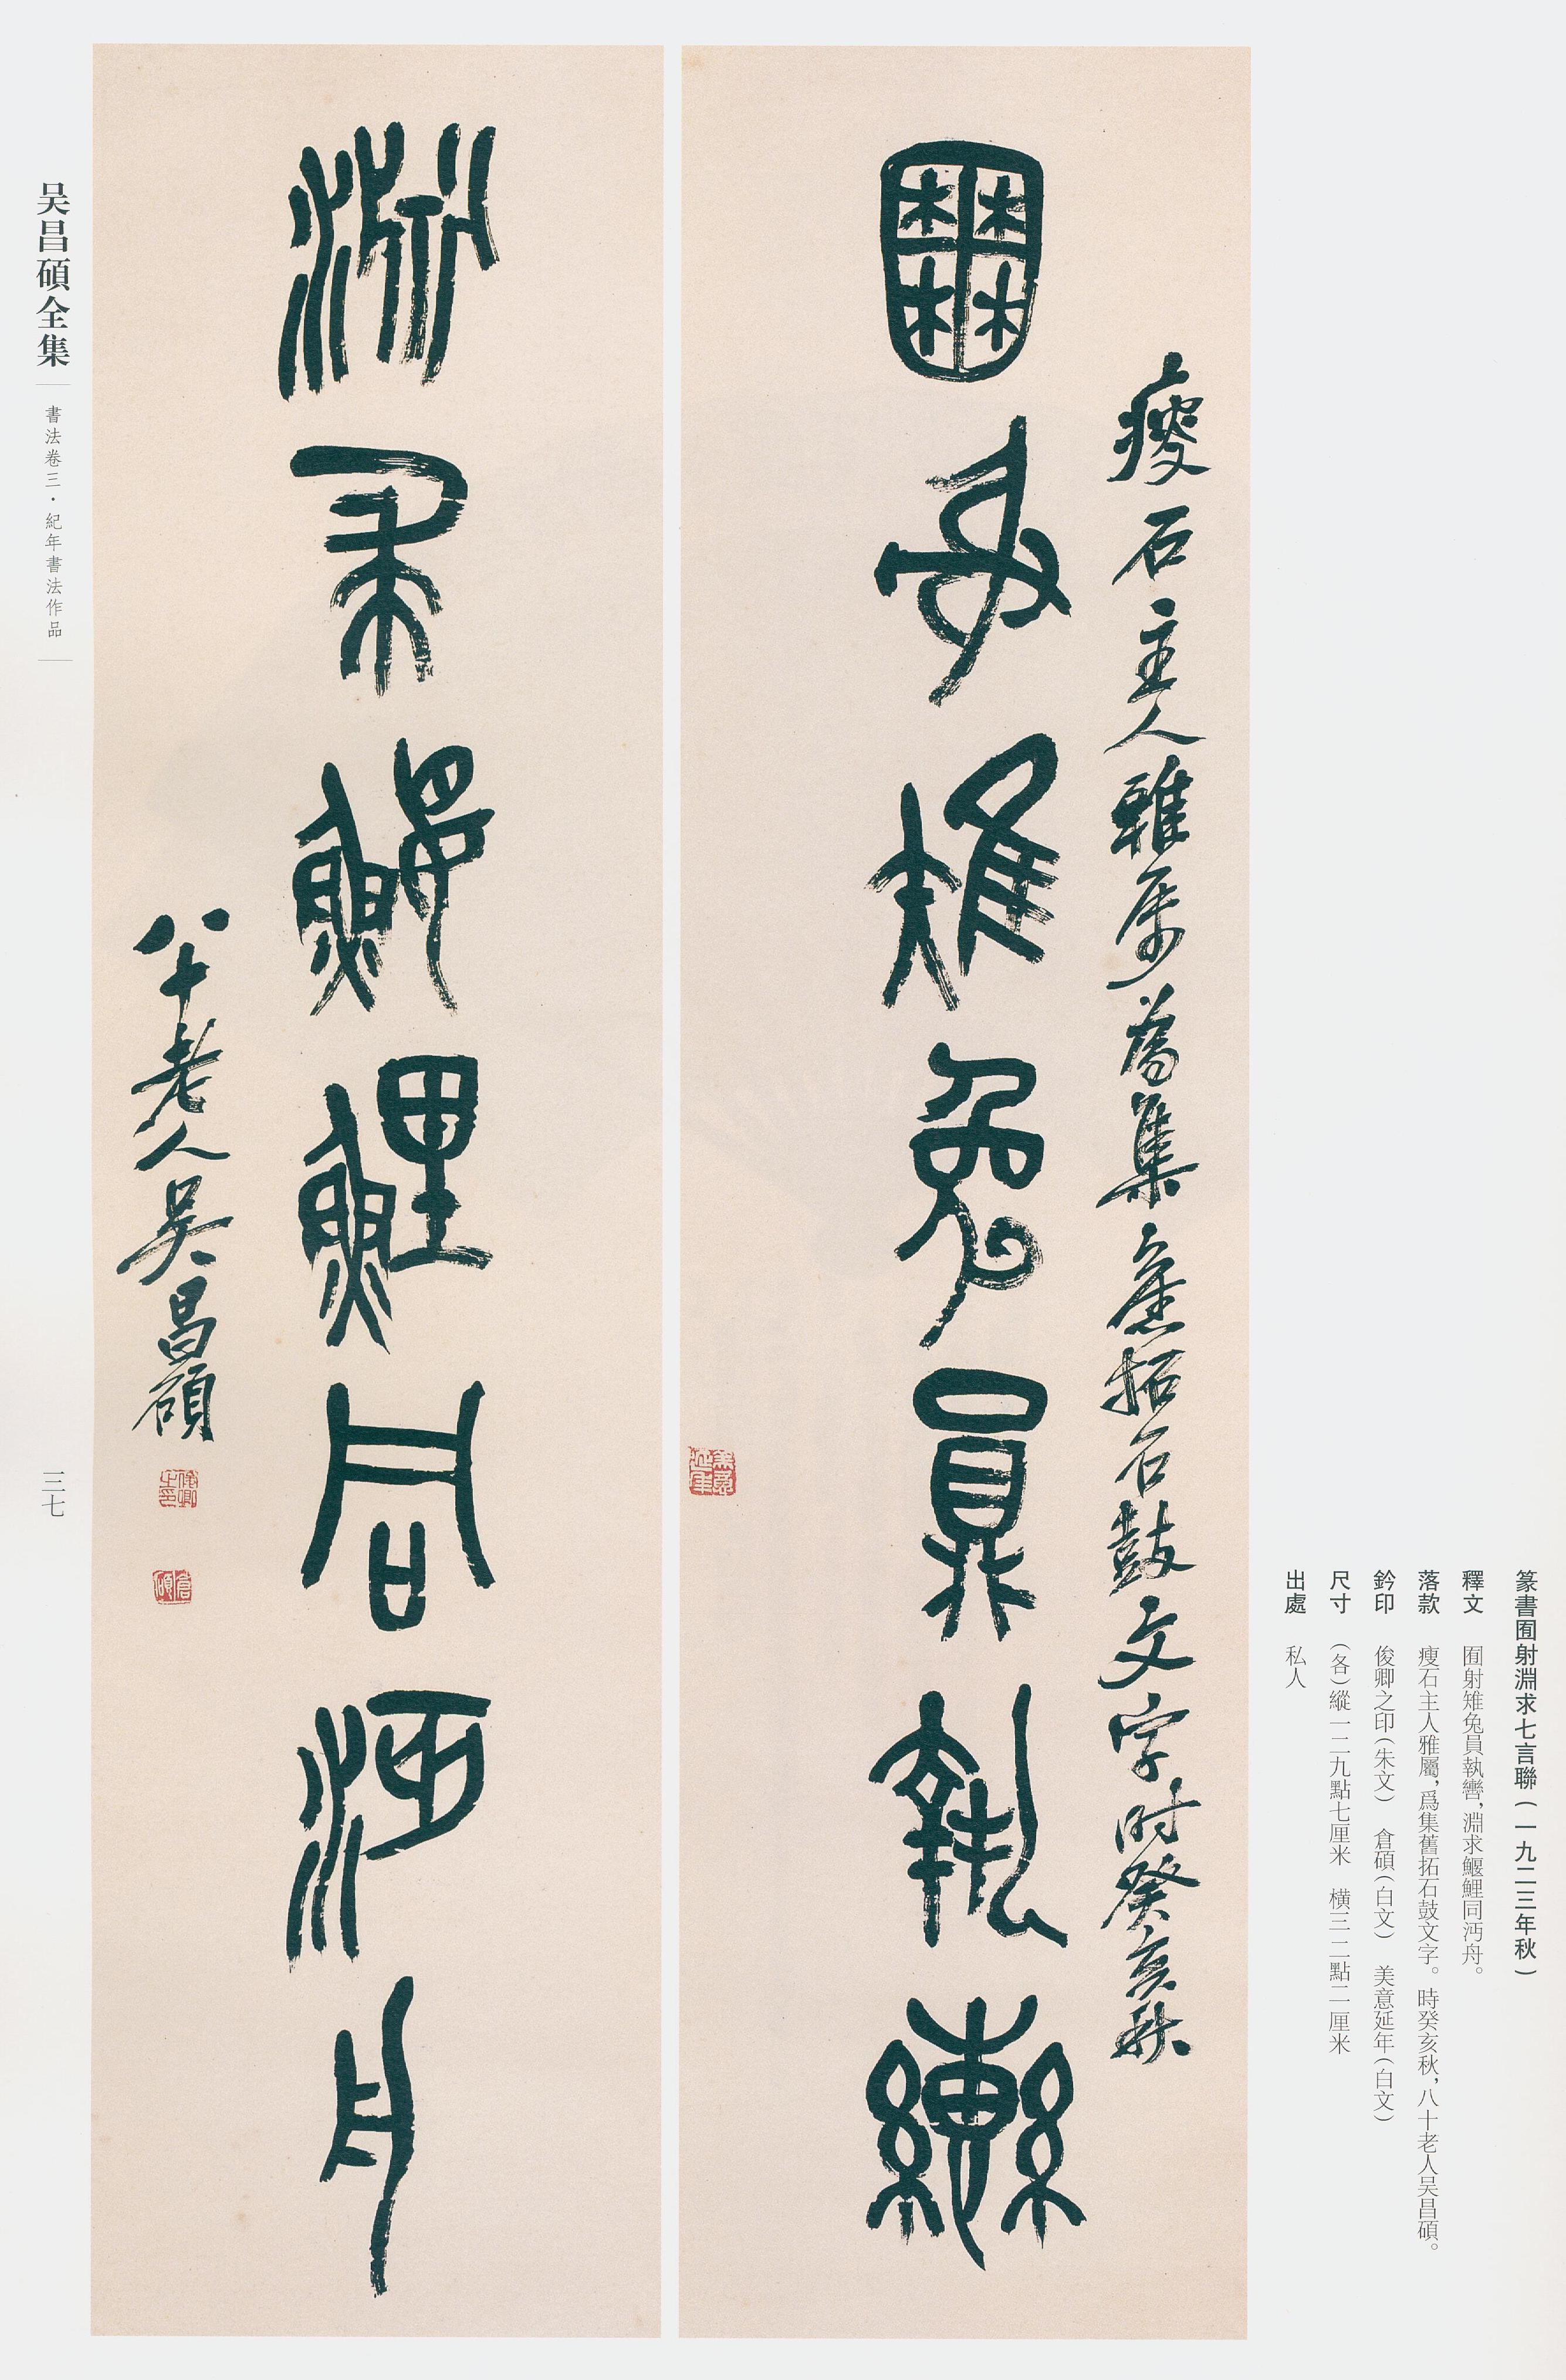 篆書囿射淵求七言聯(一九二三年秋)
釋文 囿射雉兔員執轡,淵求鰋鯉同沔舟。
落款 瘦石主人雅屬,爲集舊拓石鼓文字。時癸亥秋,八十老人吴昌碩。
鈐印 俊卿之印(朱文) 倉碩(白文) 美意延年(白文)
尺寸 (各)縱一二九點七厘米 橫三二點二厘米
出處 私人
瘦石主人雅属為集舊拓石鼓文字时癸亥秋
囿射雉兔員執轡
美意延年
淵求鰋鯉同沔舟
八十老人吴昌碩
俊卿之印
倉碩
吴昌碩全集
書法卷三·紀年書法作品
三七